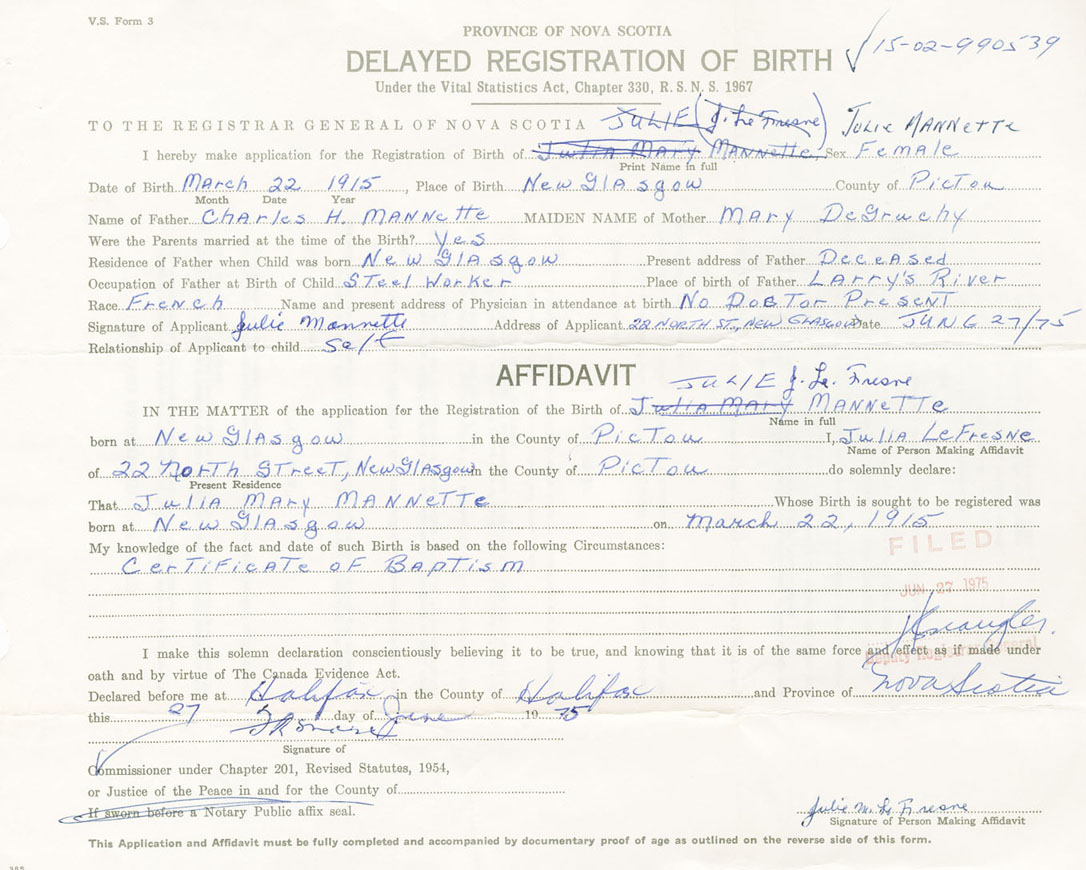 V.S. Form 3
PROVINCE OF NOVA SCOTIA
DELAYED REGISTRATION OF BIRTH
15-02-990539
Under the Vital Statistics Act, Chapter 330, R.S.N.S. 1967
TO THE REGISTRAR GENERAL OF NOVA SCOTIA JULIE (J. Le Fresne) JULIE MANNETTE
I hereby make application for the Registration of Birth of Julia Mary Mannette Sex Female
Print Name in full
Date of Birth March 22 1915, Place of Birth New Glasgow County of Pictou
Month Date Year
Name of Father Charles H. MANNette MAIDEN NAME of Mother Mary DeGruchy
Were the Parents married at the time of the Birth? Yes
Residence of Father when Child was born New Glasgow Present address of Father Deceased
Occupation of Father at Birth of Child Steel Worker Place of birth of Father Larry's River
Race French Name and present address of Physician in attendance at birth No Doctor Present
Signature of Applicant Julie Mannette Address of Applicant 22 NORTH ST., NEW GLASGOW Date JUNE 27/75
Relationship of Applicant to child Self
AFFIDAVIT
JULIE J. Le Fresne
IN THE MATTER of the application for the Registration of the Birth of Julia Mary MANNETTE
Name in full
born at New Glasgow in the County of Pictou I, Julia LeFresne
Name of Person Making Affidavit
of 22 North Street, New Glasgow in the County of Pictou do solemnly declare:
Present Residence
That Julia Mary MANNETTe Whose Birth is sought to be registered was
born at New Glasgow on March 22, 1915
My knowledge of the fact and date of such Birth is based on the following Circumstances:
FILED
Certificate of Baptism
JUN 27 1975
I make this solemn declaration conscientiously believing it to be true, and knowing that it is of the same force and effect as if made under
Deputy Registrar General
oath and by virtue of The Canada Evidence Act.
Declared before me at Halifax in the County of Halifax and Province of Nova Scotia
this 27 day of June 19 75
Signature of
Commissioner under Chapter 201, Revised Statutes, 1954,
or Justice of the Peace in and for the County of
If sworn before a Notary Public affix seal.
Julie M. Le Fresne
Signature of Person Making Affidavit
This Application and Affidavit must be fully completed and accompanied by documentary proof of age as outlined on the reverse side of this form.